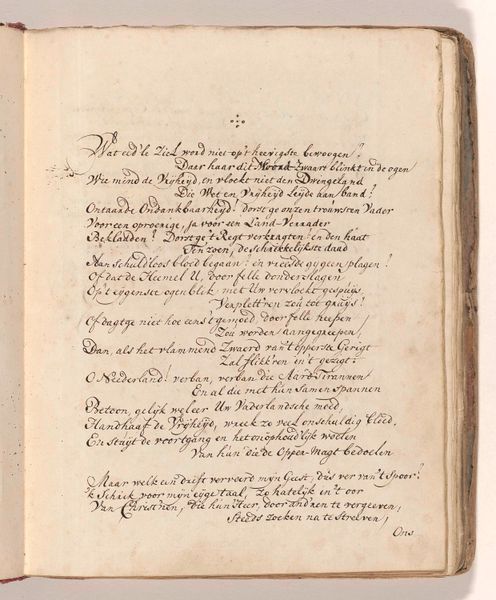 Wat eed'le Ziel word niet op't heevigste bewoogen?
Daar haar dit Moord-Zwaart blinkt in de ogen
Wie mind de Vrijheyd, en vloekt niet den Dwingeland
Die Wet en Vrijheyd Leyde aan band!
Ontaarde Ondankbaarheyd! dorst ge onzen trouwsten Vader
Voor een oproerige, ja voor een Land-Verrader
Bekladden! Dorst ge 't Regt verkragten! en den haat
Voên, de schrikkelykste daad
Aan schuldloos bloed begaan! en vreesde gy geen plagen!
Of dat de Heemel U, door felle donderslagen
Op't eygenste ogenblik, met Uw vervloekt gespuys,
Verplett'ren zou tot gruys!
Of dagtge niet hoe eens 't gemoed, door felle neepen
Zou worden aangegreepen,
Dan, als het vlammend Zwaerd van't opperste Gerigt
Zal flikk'ren in't gezigt;
O Neederland! verban, verban die Aard-Tirannen
En al die met hun samenspannen
Betoon, gelijk weleer Uw Vaderlandsche moed,
Handhaaf de Vrijheyd, wreek zo veel onschuldig bloed,
En stuyt de voortgang en het onophoudlyk woelen
Van hun die de Opper-Magt bedoelen
Maar welk een drift vervoerd mijn Geest, dus ver van't Spoor!
'k Schrik voor mijn eyge taal, Zo hatelijk in't oor
Van Christ'nen, die hun Heer, door and'ren te vergeeven,
Steeds zoeken na te streeven,
Ons